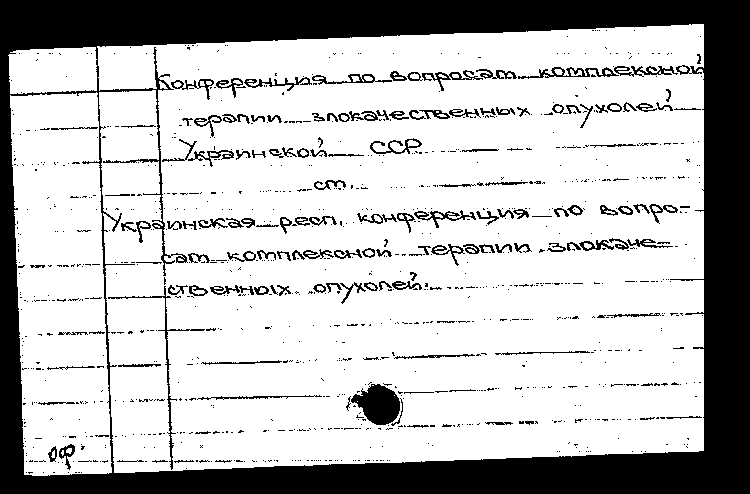 Конференция по вопросам комплексной
терапии злокачественных опухолей
Украинской ССР
ст.
Украинская респ. конференция по вопро-
сам комплексной терапии злокаче-
ственных опухолей.
оф.